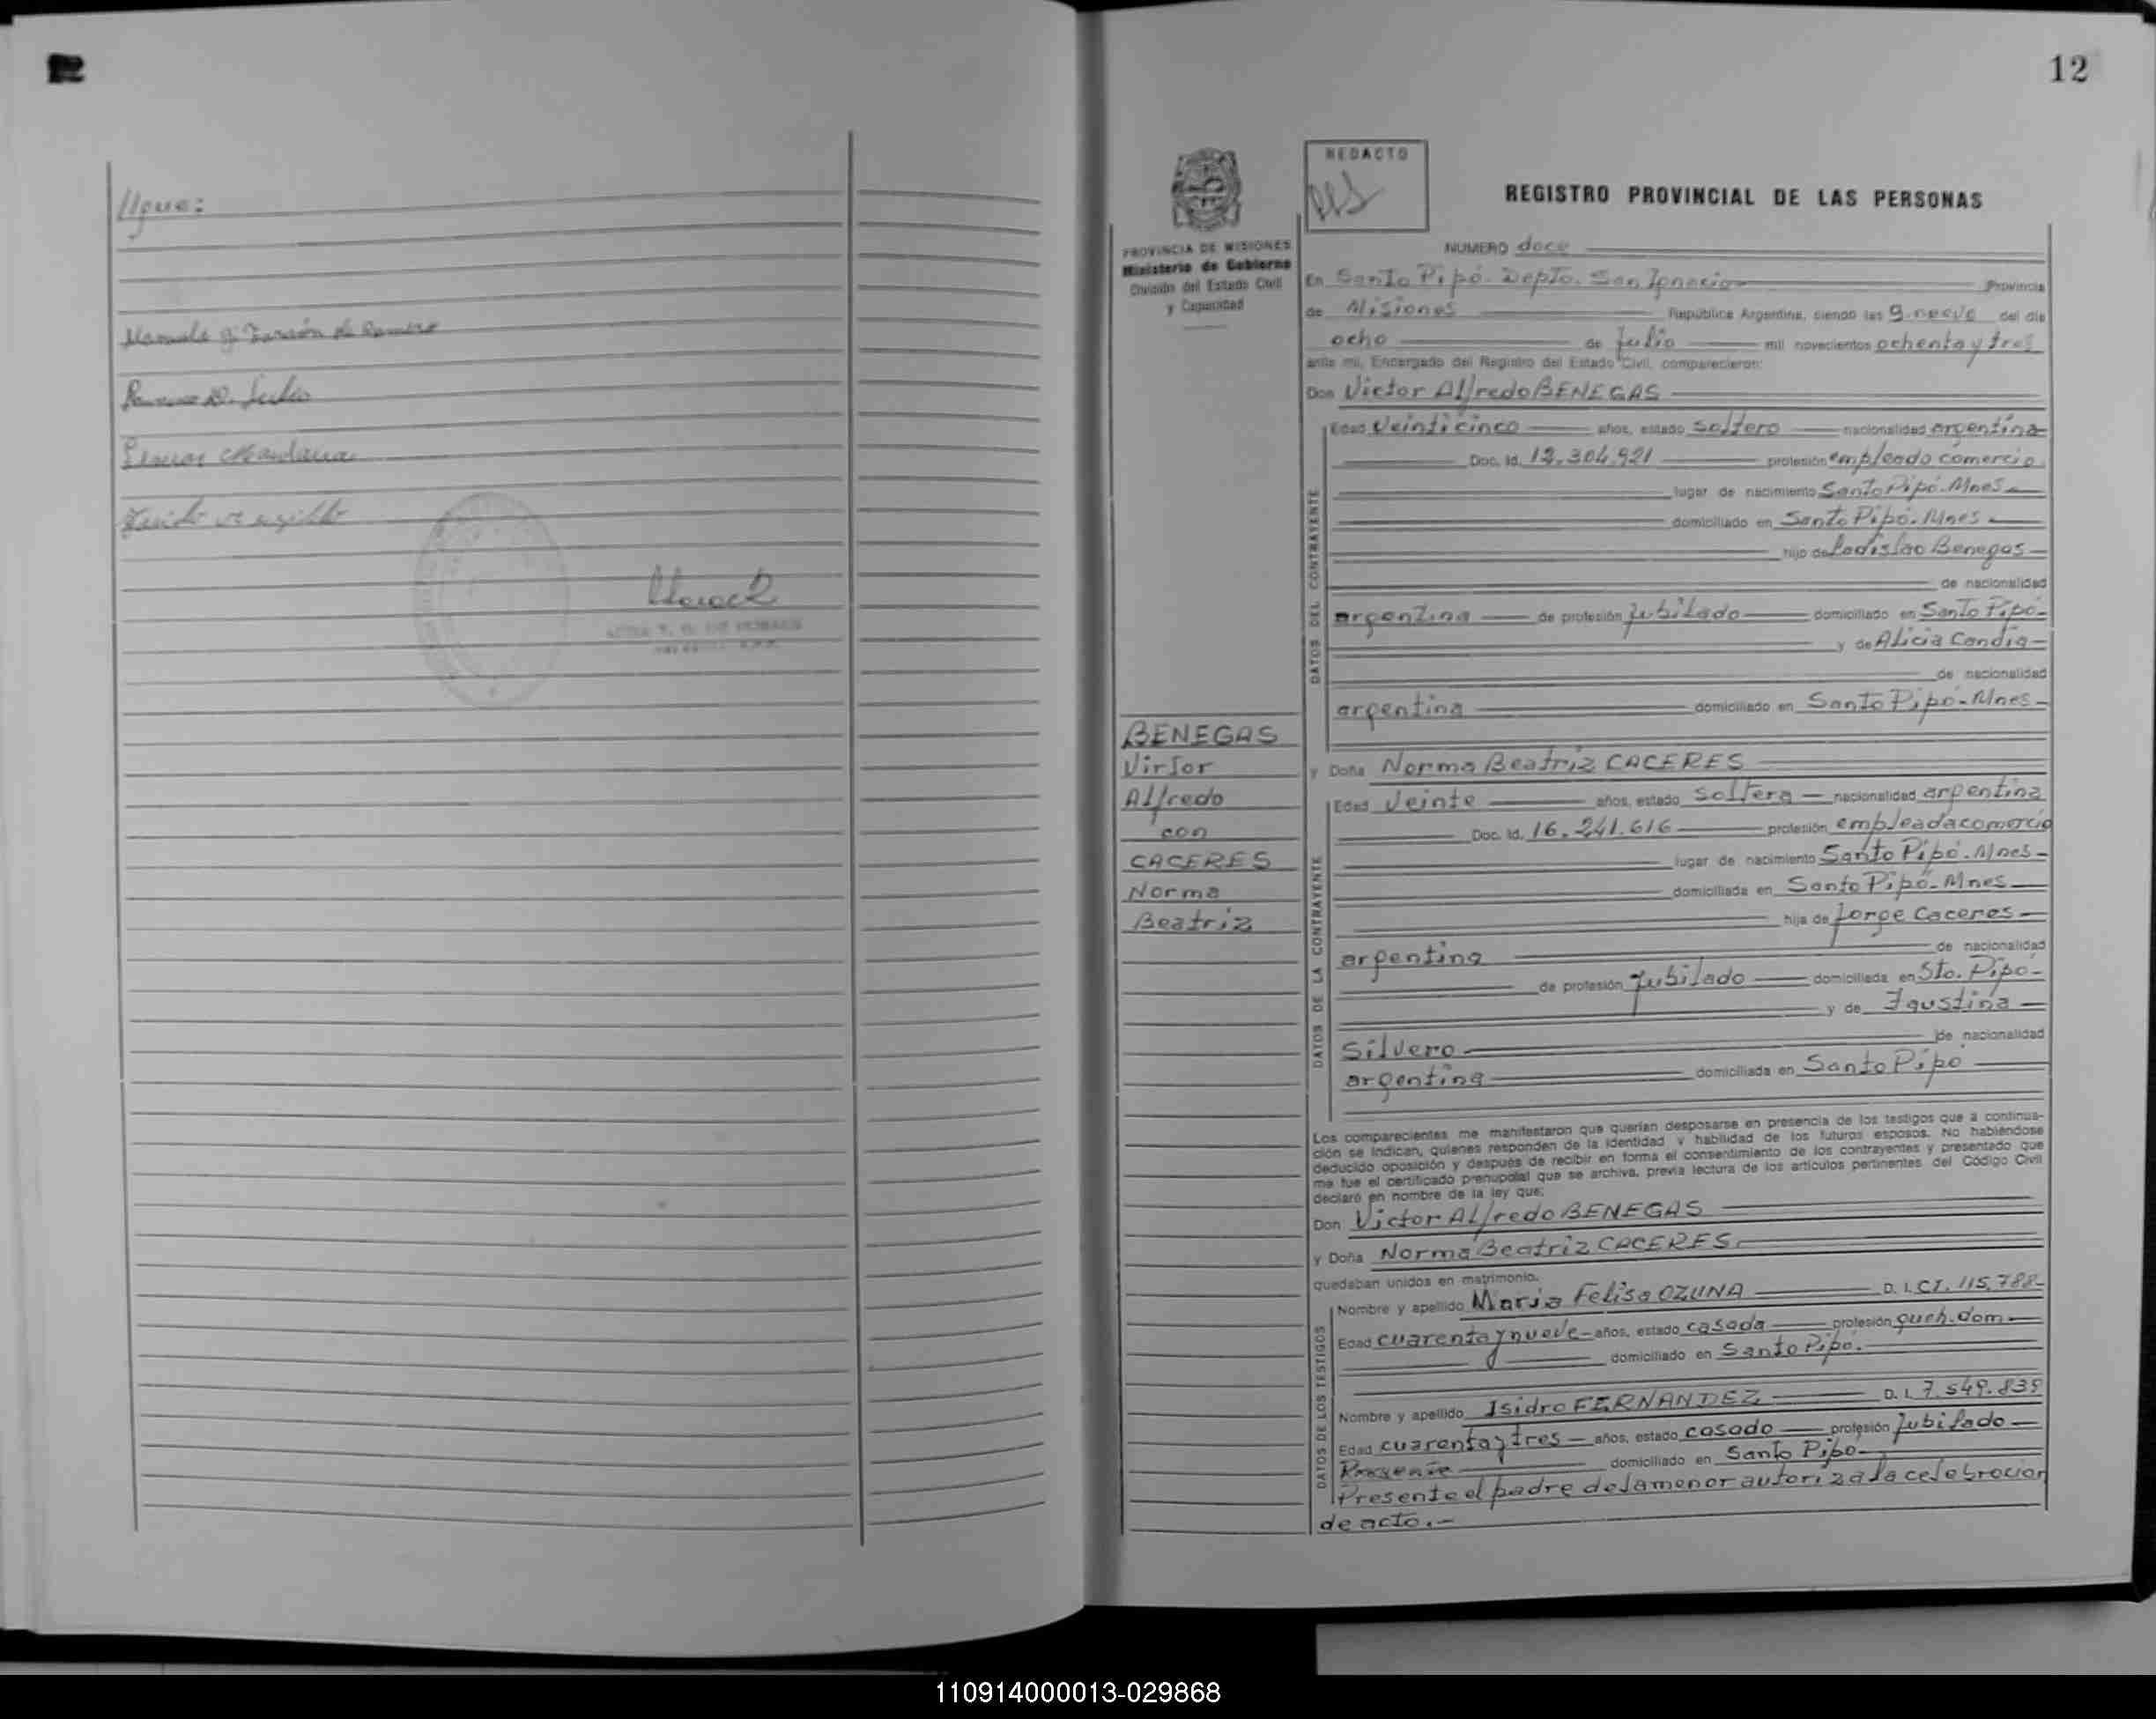 12
REDACTO
REGISTRO PROVINCIAL DE LAS PERSONAS
PROVINCIA DE MISIONES
Ministerio de Gobierno
División del Estado Civil
y Capacidad
NUMERO doce
En Santo Pipó. Depto. San Ignacio Provincia
de Misiones República Argentina, siendo las 9 nueve del día
ocho de Julio mil novecientos ochenta y tres
ante mi, Encargado del Registro del Estado Civil, comparecieron:
Don Victor Alfredo BENEGAS
DATOS DEL CONTRAYENTE
Edad Veinticinco años, estado soltero nacionalidad argentina
Doc. Id. 12.304.921 profesión empleado comercio
lugar de nacimiento Santo Pipó. Mnes
domiciliado en Santo Pipó. Mnes
hijo de Ladislao Benegas
de nacionalidad
argentina de profesión Jubilado domiciliado en Santo Pipó
y de Alicia Candia
de nacionalidad
argentina domiciliado en Santo Pipó-Mnes
BENEGAS
Virtor
Alfredo
con
CACERES
Norma
Beatriz
y Doña Norma Beatriz CACERES
DATOS DE LA CONTRAYENTE
Edad Veinte años, estado soltera nacionalidad argentina
Doc. Id. 16.241.616 profesión empleada comercio
lugar de nacimiento Santo Pipó. Mnes
domiciliada en Santo Pipó-Mnes
hija de Jorge Caceres
de nacionalidad
argentina
de profesión Jubilado domiciliada en Sto. Pipó
y de Agustina
Silvero de nacionalidad
argentina domiciliada en Santo Pipó
Los comparecientes me manifestaron que querían desposarse en presencia de los testigos que a continua-
ción se indican, quienes responden de la identidad y habilidad de los futuros esposos. No habiéndose
deducido oposición y después de recibir en forma el consentimiento de los contrayentes y presentado que
me fue el certificado prenupcial que se archiva, previa lectura de los artículos pertinentes del Código Civil
declaré en nombre de la ley que:
Don Victor Alfredo BENEGAS
y Doña Norma Beatriz CACERES
quedaban unidos en matrimonio.
DATOS DE LOS TESTIGOS
Nombre y apellido Maria Felisa OZUNA D. I. C.I. 115.788
Edad cuarenta y nueve años, estado casada profesión queh. dom
domiciliado en Santo Pipó.
Nombre y apellido Isidro FERNANDEZ D. I. 7.549.839
Edad cuarenta y tres años, estado casado profesión Jubilado
domiciliado en Santo Pipó
Presente el padre de la menor autoriza la celebracion
de acto.-
110914000013-029868